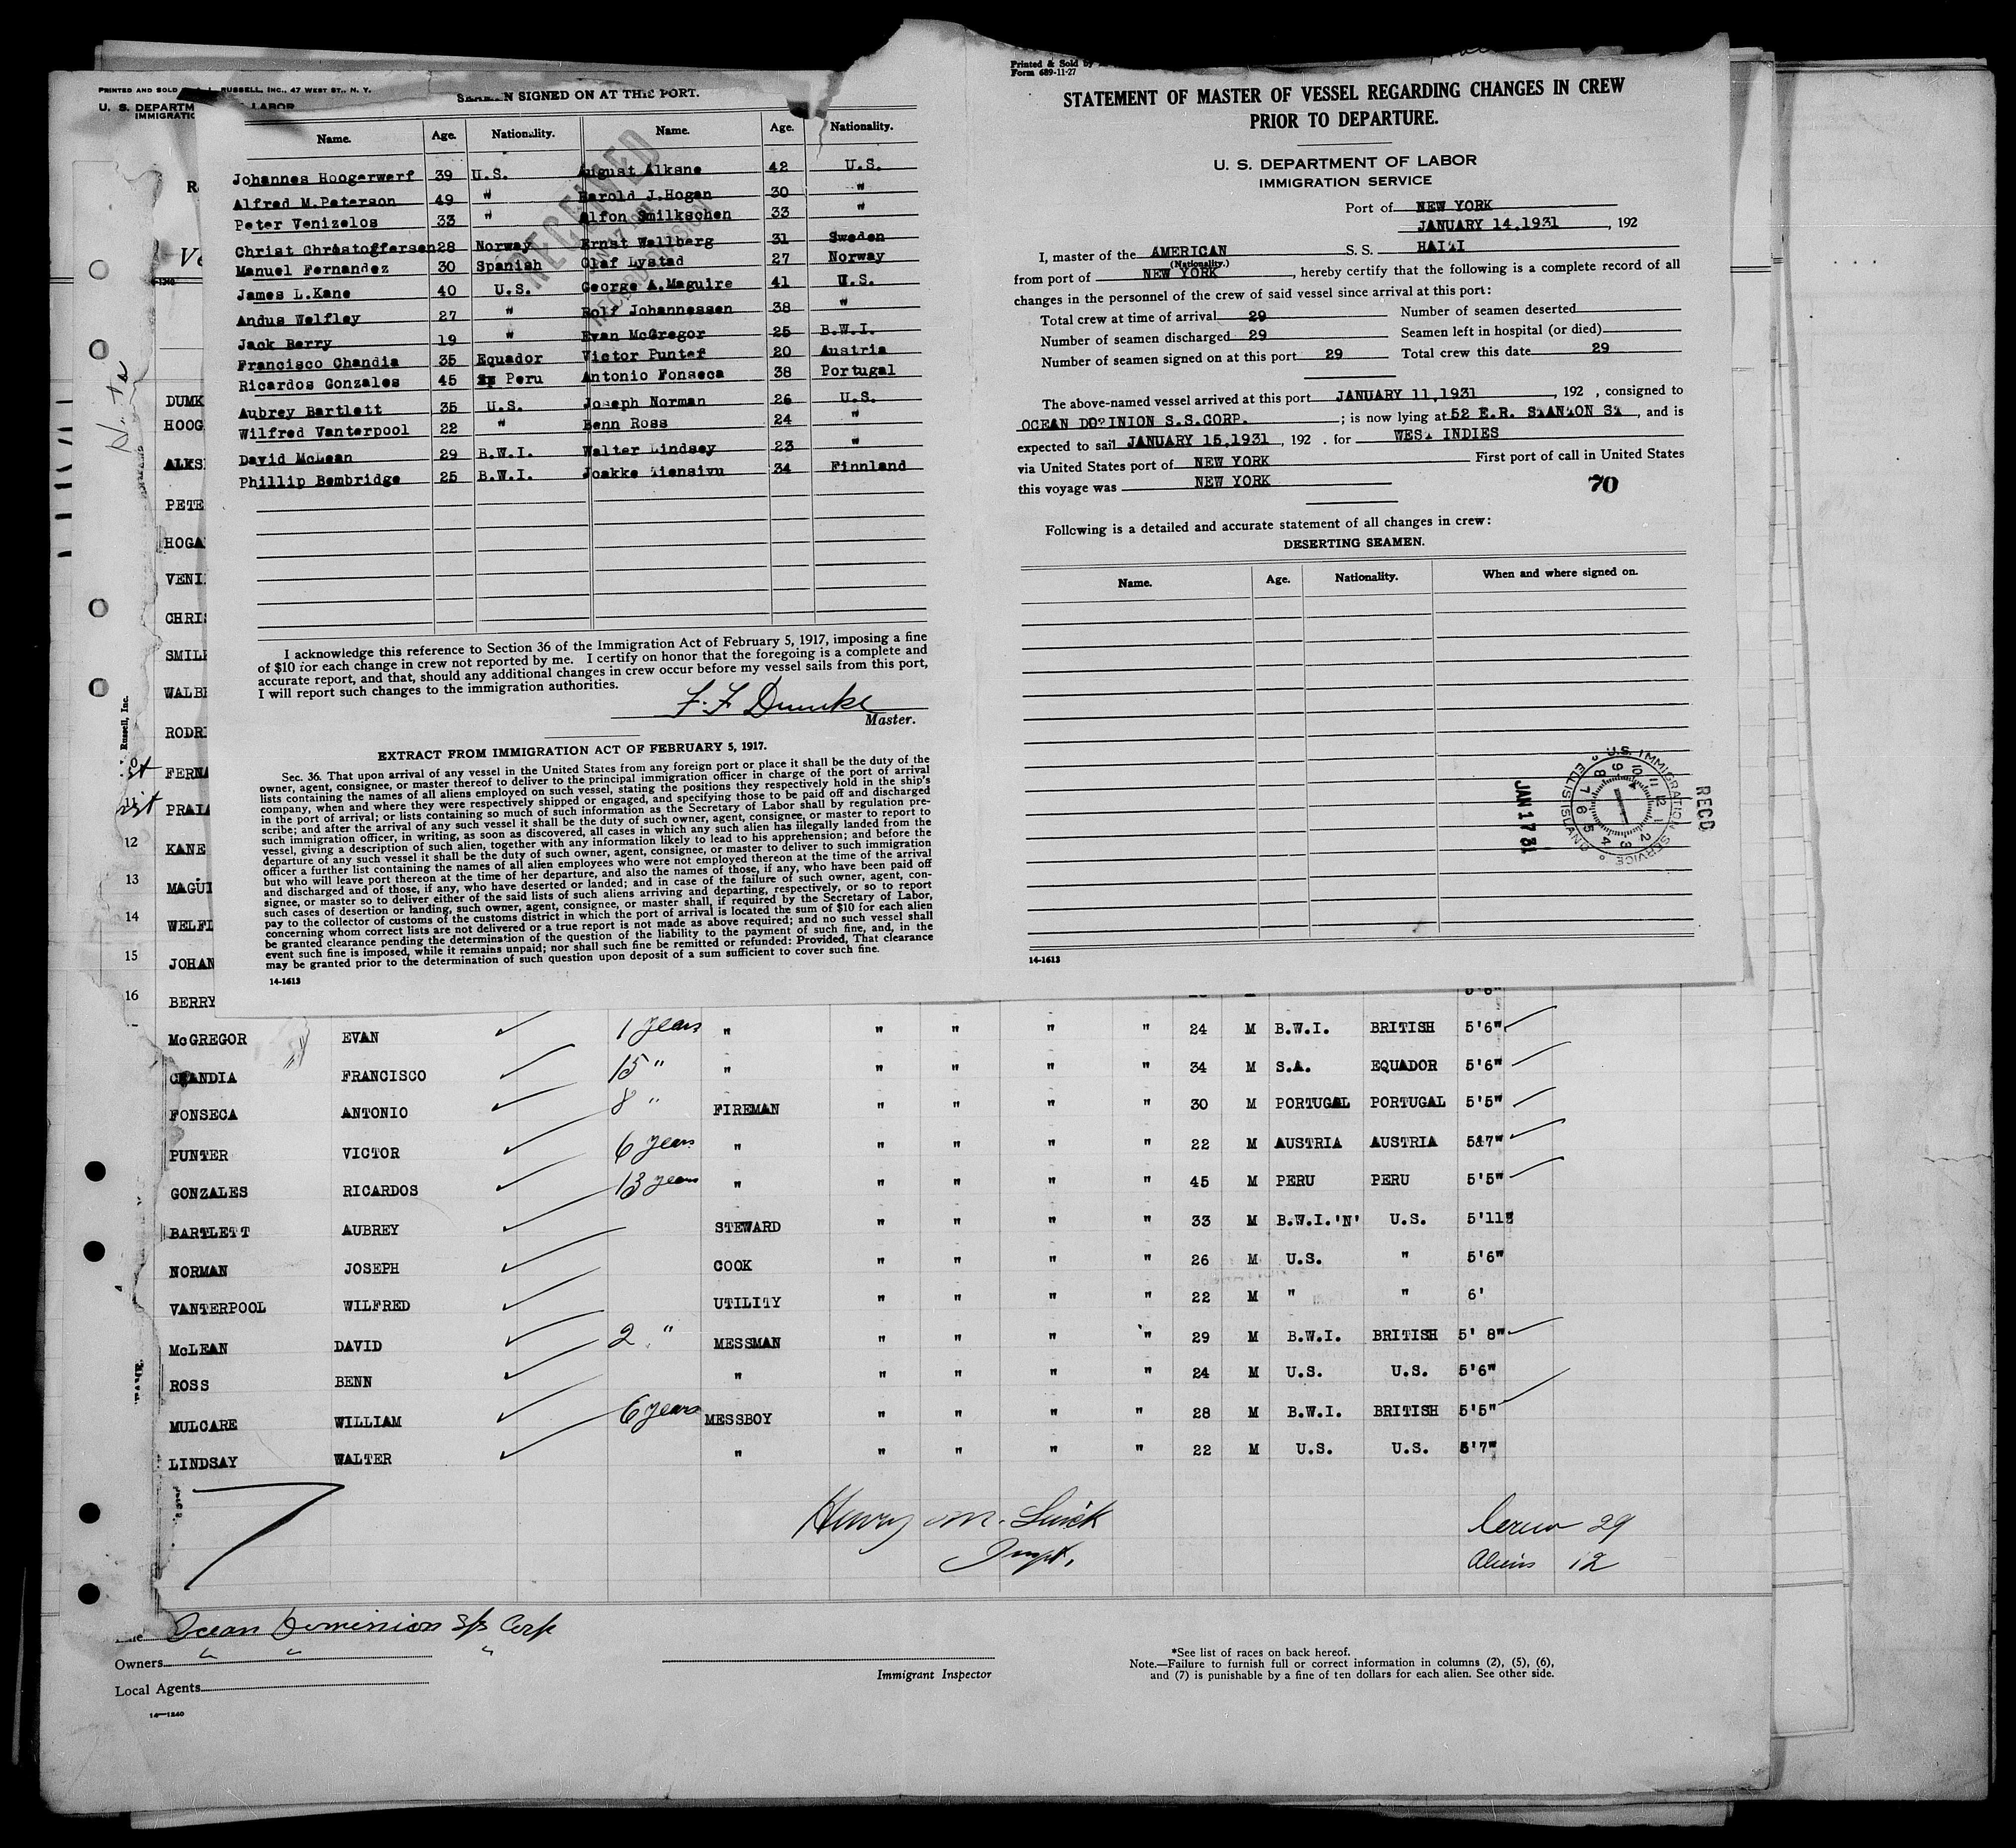 PRINTED AND SOLD RUSSELL, INC., 47 WEST ST., N. Y.
U. S. DEPARTM LABOR
IMMIGRATIO
SIGNED ON AT THIS PORT.
Name. Age. Nationality. Name. Age. Nationality.
Johannes Hoogerwerf 39 U.S. August Alksne 42 U.S.
Alfred M.Peterson 49 " Harold J.Hogan 30 "
Peter Venizelos 33 " Alfon Smilkschen 33 "
Christ Christoffersen 28 Norway Ernst Wallberg 31 Sweden
Manuel Fernandez 30 Spanish Olaf Lystad 27 Norway
James L.Kane 40 U.S. George A.Maguire 41 U.S.
Andus Welfley 27 " Rolf Johannessen 38 "
Jack Berry 19 " Evan McGregor 25 B.W.I.
Francisco Chandia 35 Equador Victor Punter 20 Austria
Ricardos Gonzales 45 Peru Antonio Fonseca 38 Portugal
Aubrey Bartlett 35 U.S. Joseph Norman 26 U.S.
Wilfred Vanterpool 22 " Benn Ross 24 "
David McLean 29 B.W.I. Walter Lindsey 23 "
Phillip Bembridge 25 B.W.I. Joakke Tiensivu 34 Finnland
RECEIVED
I acknowledge this reference to Section 36 of the Immigration Act of February 5, 1917, imposing a fine
of $10 for each change in crew not reported by me. I certify on honor that the foregoing is a complete and
accurate report, and that, should any additional changes in crew occur before my vessel sails from this port,
I will report such changes to the immigration authorities.
F. F. Dumke
Master.
EXTRACT FROM IMMIGRATION ACT OF FEBRUARY 5, 1917.
Sec. 36. That upon arrival of any vessel in the United States from any foreign port or place it shall be the duty of the
owner, agent, consignee, or master thereof to deliver to the principal immigration officer in charge of the port of arrival
lists containing the names of all aliens employed on such vessel, stating the positions they respectively hold in the ship's
company, when and where they were respectively shipped or engaged, and specifying those to be paid off and discharged
in the port of arrival; or lists containing so much of such information as the Secretary of Labor shall by regulation pre-
scribe; and after the arrival of any such vessel it shall be the duty of such owner, agent, consignee, or master to report to
such immigration officer, in writing, as soon as discovered, all cases in which any such alien has illegally landed from the
vessel, giving a description of such alien, together with any information likely to lead to his apprehension; and before the
departure of any such vessel it shall be the duty of such owner, agent, consignee, or master to deliver to such immigration
officer a further list containing the names of all alien employees who were not employed thereon at the time of the arrival
but who will leave port thereon at the time of her departure, and also the names of those, if any, who have been paid off
and discharged and of those, if any, who have deserted or landed; and in case of the failure of such owner, agent, con-
signee, or master so to deliver either of the said lists of such aliens arriving and departing, respectively, or so to report
such cases of desertion or landing, such owner, agent, consignee, or master shall, if required by the Secretary of Labor,
pay to the collector of customs of the customs district in which the port of arrival is located the sum of $10 for each alien
concerning whom correct lists are not delivered or a true report is not made as above required; and no such vessel shall
be granted clearance pending the determination of the question of the liability to the payment of such fine, and, in the
event such fine is imposed, while it remains unpaid; nor shall such fine be remitted or refunded: Provided, That clearance
may be granted prior to the determination of such question upon deposit of a sum sufficient to cover such fine.
14-1613
Printed & Sold by
Form 689-11-27
STATEMENT OF MASTER OF VESSEL REGARDING CHANGES IN CREW
PRIOR TO DEPARTURE.
U. S. DEPARTMENT OF LABOR
IMMIGRATION SERVICE
Port of NEW YORK
JANUARY 14,1931, 192
I, master of the AMERICAN S. S. HAITI
(Nationality.)
from port of NEW YORK, hereby certify that the following is a complete record of all
changes in the personnel of the crew of said vessel since arrival at this port:
Total crew at time of arrival 29 Number of seamen deserted
Number of seamen discharged 29 Seamen left in hospital (or died)
Number of seamen signed on at this port 29 Total crew this date 29
The above-named vessel arrived at this port JANUARY 11,1931, 192 , consigned to
OCEAN DOMINION S.S.CORP. ; is now lying at 52 E.R. STANTON ST, and is
expected to sail JANUARY 15,1931, 192 . for WEST INDIES
via United States port of NEW YORK First port of call in United States
this voyage was NEW YORK
70
Following is a detailed and accurate statement of all changes in crew:
DESERTING SEAMEN.
Name. Age. Nationality. When and where signed on.
U.S. IMMIGRATION SERVICE ELLIS ISLAND
12 1 2 3 4 5 6 7 8 9 10 11
JAN 17 31
REC'D
14-1613
DUMK
HOOG
ALKS
PETE
HOGA
VENI
CHRIS
SMILK
WALBE
RODRI
FERNA
PRAIA
12 KANE
13 MAGUI
14 WELFL
15 JOHAN
16 BERRY
Russell, Inc.
McGREGOR EVAN 1 years " " " " " 24 M B.W.I. BRITISH 5'6"
CHANDIA FRANCISCO 15 " " " " " " 34 M S.A. EQUADOR 5'6"
FONSECA ANTONIO 8 " FIREMAN " " " " 30 M PORTUGAL PORTUGAL 5'5"
PUNTER VICTOR 6 years " " " " " 22 M AUSTRIA AUSTRIA 5&7"
GONZALES RICARDOS 13 years " " " " " 45 M PERU PERU 5'5"
BARTLETT AUBREY STEWARD " " " " 33 M B.W.I.'N' U.S. 5'11"
NORMAN JOSEPH COOK " " " " 26 M U.S. " 5'6"
VANTERPOOL WILFRED UTILITY " " " " 22 M " " 6'
McLEAN DAVID 2 " MESSMAN " " " " 29 M B.W.I. BRITISH 5' 8"
ROSS BENN " " " " " 24 M U.S. U.S. 5'6"
MULCARE WILLIAM 6 years MESSBOY " " " " 28 M B.W.I. BRITISH 5'5"
LINDSAY WALTER " " " " " 22 M U.S. U.S. 5'7"
Crew 29
Aliens 12
Ocean Dominion S/S Corp
Owners " " "
Local Agents
Immigrant Inspector
*See list of races on back hereof.
Note.—Failure to furnish full or correct information in columns (2), (5), (6),
and (7) is punishable by a fine of ten dollars for each alien. See other side.
14—1240